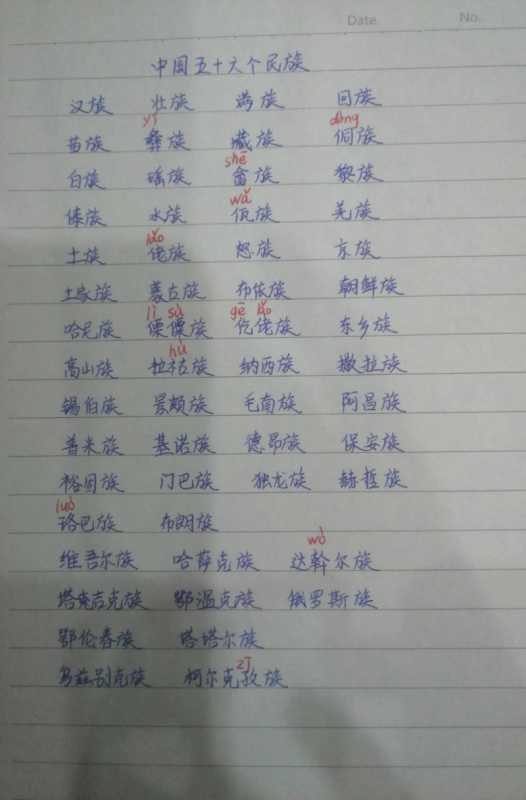 Date. No.
中国五十六个民族
汉族 壮族 满族 回族
yí dòng
苗族 彝族 藏族 侗族
shē
白族 瑶族 畲族 黎族
wǎ
傣族 水族 佤族 羌族
lǎo
土族 佬族 怒族 东族
土家族 蒙古族 布依族 朝鲜族
lì sù gē lǎo
哈尼族 傈僳族 仡佬族 东乡族
hù
高山族 拉祜族 纳西族 撒拉族
锡伯族 景颇族 毛南族 阿昌族
普米族 基诺族 德昂族 保安族
裕固族 门巴族 独龙族 赫哲族
luò
珞巴族 布朗族
wò
维吾尔族 哈萨克族 达斡尔族
塔吉克族 鄂温克族 俄罗斯族
鄂伦春族 塔塔尔族
zī
乌兹别克族 柯尔克孜族